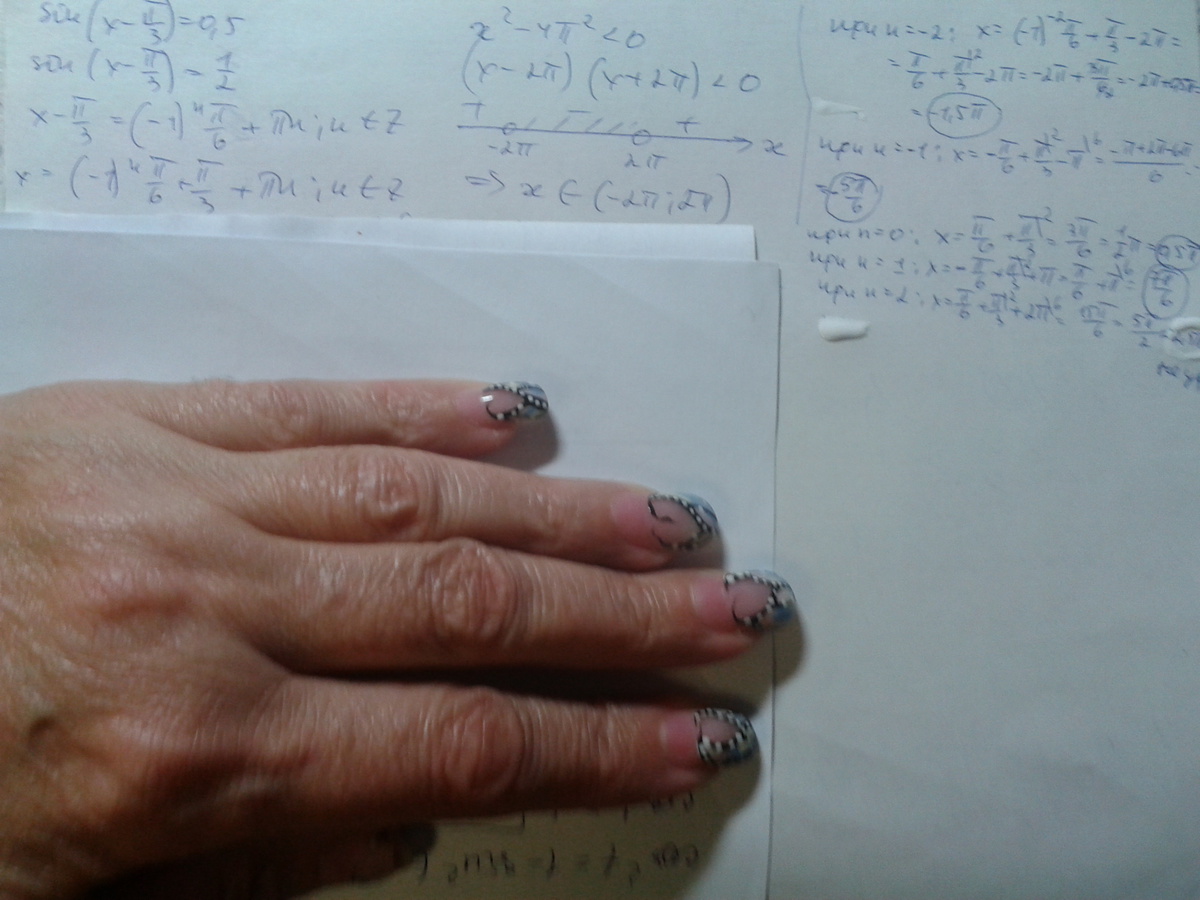 sin(x-π/3)=0,5
sin(x-π/3)=1/2
x-π/3=(-1)ⁿ π/6+πn; n∈Z
x=(-1)ⁿ π/6+π/3+πn; n∈Z
x²-4π²<0
(x-2π)(x+2π)<0
+ - + x
-2π 2π
=> x∈(-2π;2π)
при n=-2: x=(-1)⁻² π/6+π/3-2π=
=π/6+π/3-2π=-2π+
=-1,5π
при n=-1: x=-π/6+π/3-π=(-π+2π-6π)/6
=-5π/6
при n=0: x=π/6+π/3=3π/6=1/2π=0,5π
при n=1: x=-π/6+π/3+π=π/6+π=7π/6
при n=2: x=π/6+π/3+2π=15π/6=5π/2